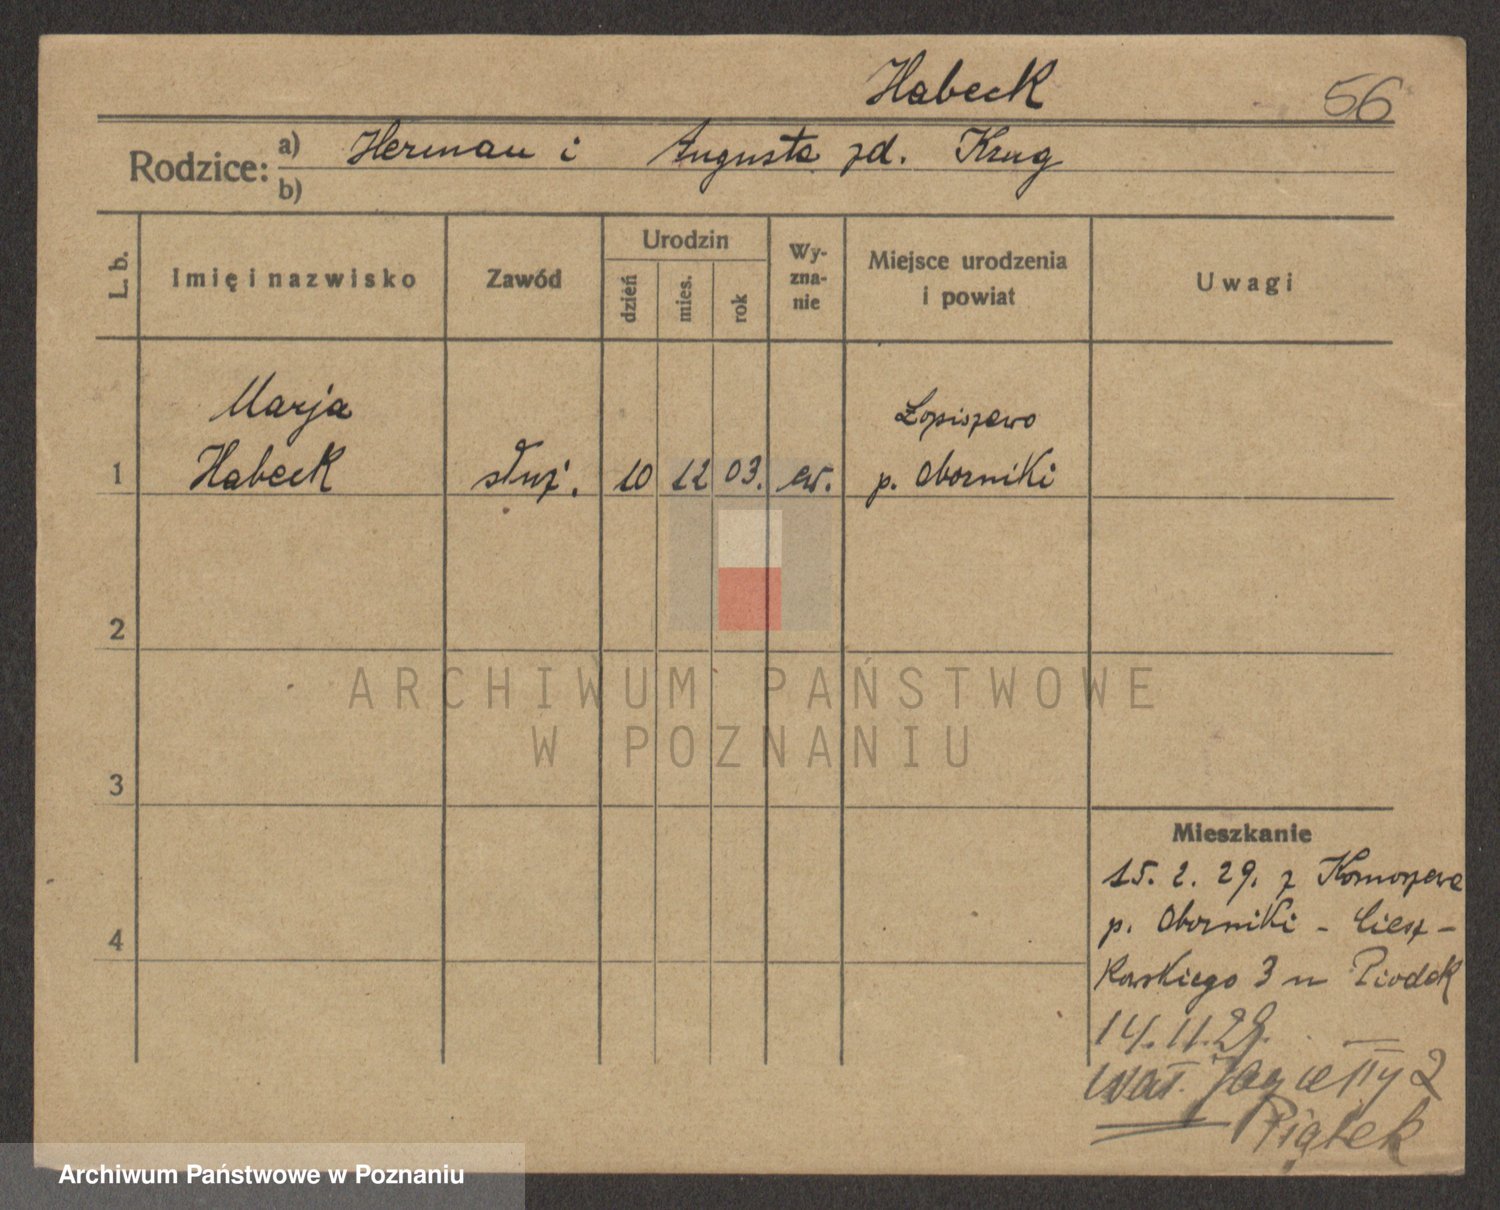 Habeck
56
Rodzice: a) Herman i Augusta zd. Krug
b)
L. b.
Imię i nazwisko
Zawód
Urodzin
dzień
mies.
rok
Wy-
zna-
nie
Miejsce urodzenia
i powiat
Uwagi
Marja Łopiszewo
1 Habeck służ. 10 12 03. ew. p. Oborniki
2
3
4
Mieszkanie
15. 2. 29. z
p. Oborniki - Ciesz-
kowskiego 3 u
14. 11. 29.
Wał. Jagiełły 2
Piątek
ARCHIWUM PAŃSTWOWE
W POZNANIU
Archiwum Państwowe w Poznaniu